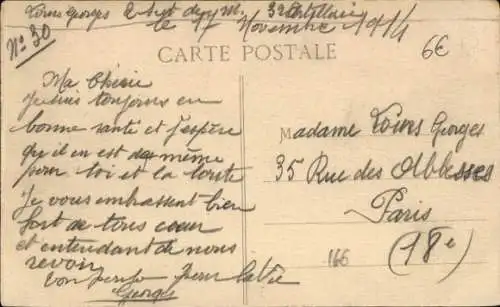 Nº 30
Louis Georges
le 7 Novembre 1914
CARTE POSTALE
6€
Ma Chérie
Je suis toujours en
bonne santé et J'espère
qu'il en est de même
pour toi et la toute
Je vous embrassent bien
fort de tous coeur
et entendant de nous
revoir
ton pour la vie
Georges
Madame Louis Georges
35 Rue des Abbesses
Paris
(18e)
166